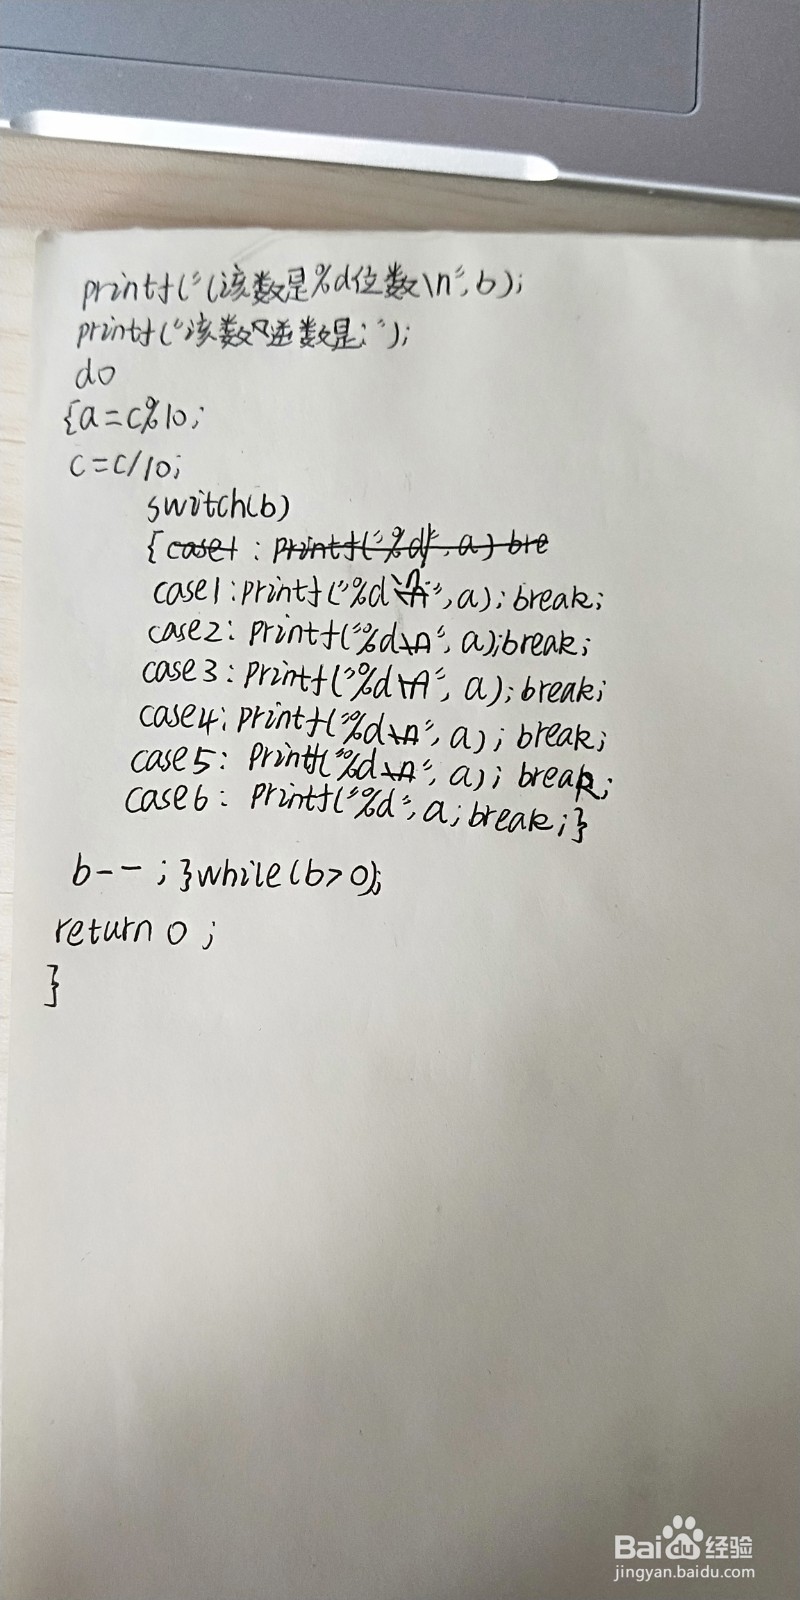 printf("(该数是%d位数\n", b);
printf("该数的逆数是:");
do
{a=c%10;
c=c/10;
switch(b)
{case1: printf("%d", a) bre
case1:printf("%d\n", a); break;
case2: printf("%d\n", a);break;
case3: printf("%d\n", a); break;
case4: printf("%d\n", a); break;
case5: printf("%d\n", a); break;
case6: printf("%d", a; break;}
b--; }while(b>0);
return 0;
}
Baidu经验
jingyan.baidu.com